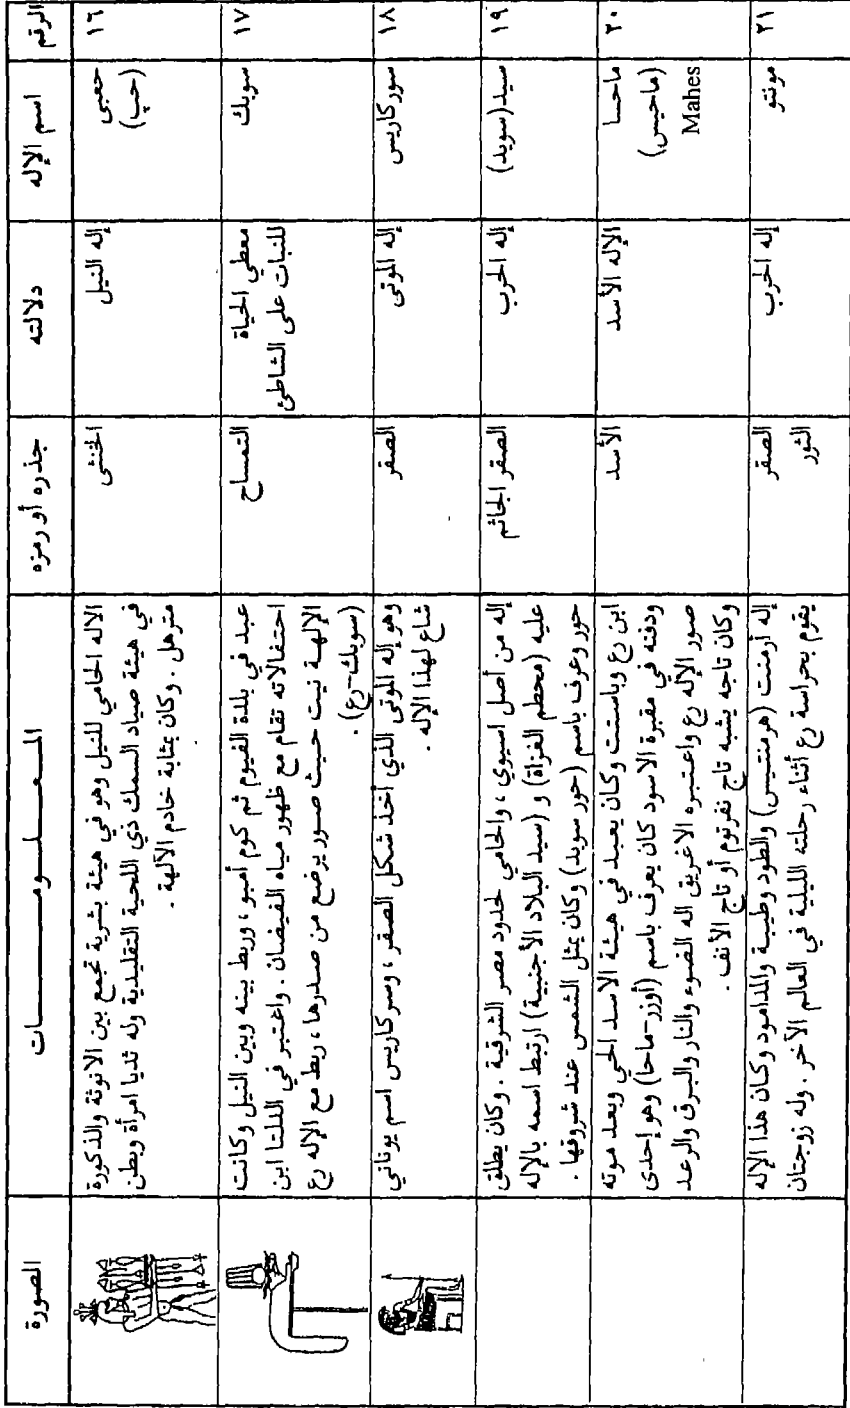 الرقم
اسم الإله
دلالته
جذره أو رمزه
المـعـلـومـــات
الصورة
١٦
حعبى
(حپ)
إله النيل
الخنثى
الاله الحامي للنيل وهو في هيئة بشرية تجمع بين الانوثة والذكورة
في هيئة صياد السمك ذي اللحية التقليدية وله ثديا امرأة وبطن
مترهل . وكان بمثابة خادم الآلهة .
١٧
سوبك
معطي الحياة
للنبات على الشاطئ
التمساح
عبد في بلدة الفيوم ثم كوم أمبو ، وربط بينه وبين النيل وكانت
احتفالاته تقام مع ظهور مياه الفيضان . واعتبر في الدلتا ابن
الإلهـة نيت حيث صور يرضع من صدرها ، ربط مع الإله رع
(سوبك-رع) .
١٨
سوركاريس
إله الموتى
الصقر
وهو إله الموتى الذي أخذ شكل الصقر ، وسركاريس اسم يوناني
شاع لهذا الإله .
١٩
سيد (سوبد)
إله الحرب
الصقر الجاثم
إله من أصل اسيوي ، والحامي لحدود مصر الشرقية . وكان يطلق
عليه (محطم الغزاة) و (سيد البلاد الأجنبية) ارتبط اسمه بالإله
حور وعرف باسم (حور سوبد) وكان يمثل الشمس عند شروقها .
٢٠
ماحسا
(ماحيس)
Mahes
الإله الأسد
الأسد
ابن رع وباستت وكان يعبد في هيئة الاسد الحي وبعد موته
ودفنه في مقبرة الاسود كان يعرف باسم (أوزر-ماحا) وهو إحدى
صور الإله رع واعتبره الاغريق اله الضوء والنار والبرق والرعد
وكان تاجه يشبه تاج نفرتوم أو تاج الأتف .
٢١
مونتو
إله الحرب
الصقر
الثور
إله أرمنت (هرمنتيس) والطود وطيبة والمدامود وكان هذا الإله
يقوم بحراسة رع أثناء رحلته الليلية في العالم الآخر . وله زوجتان